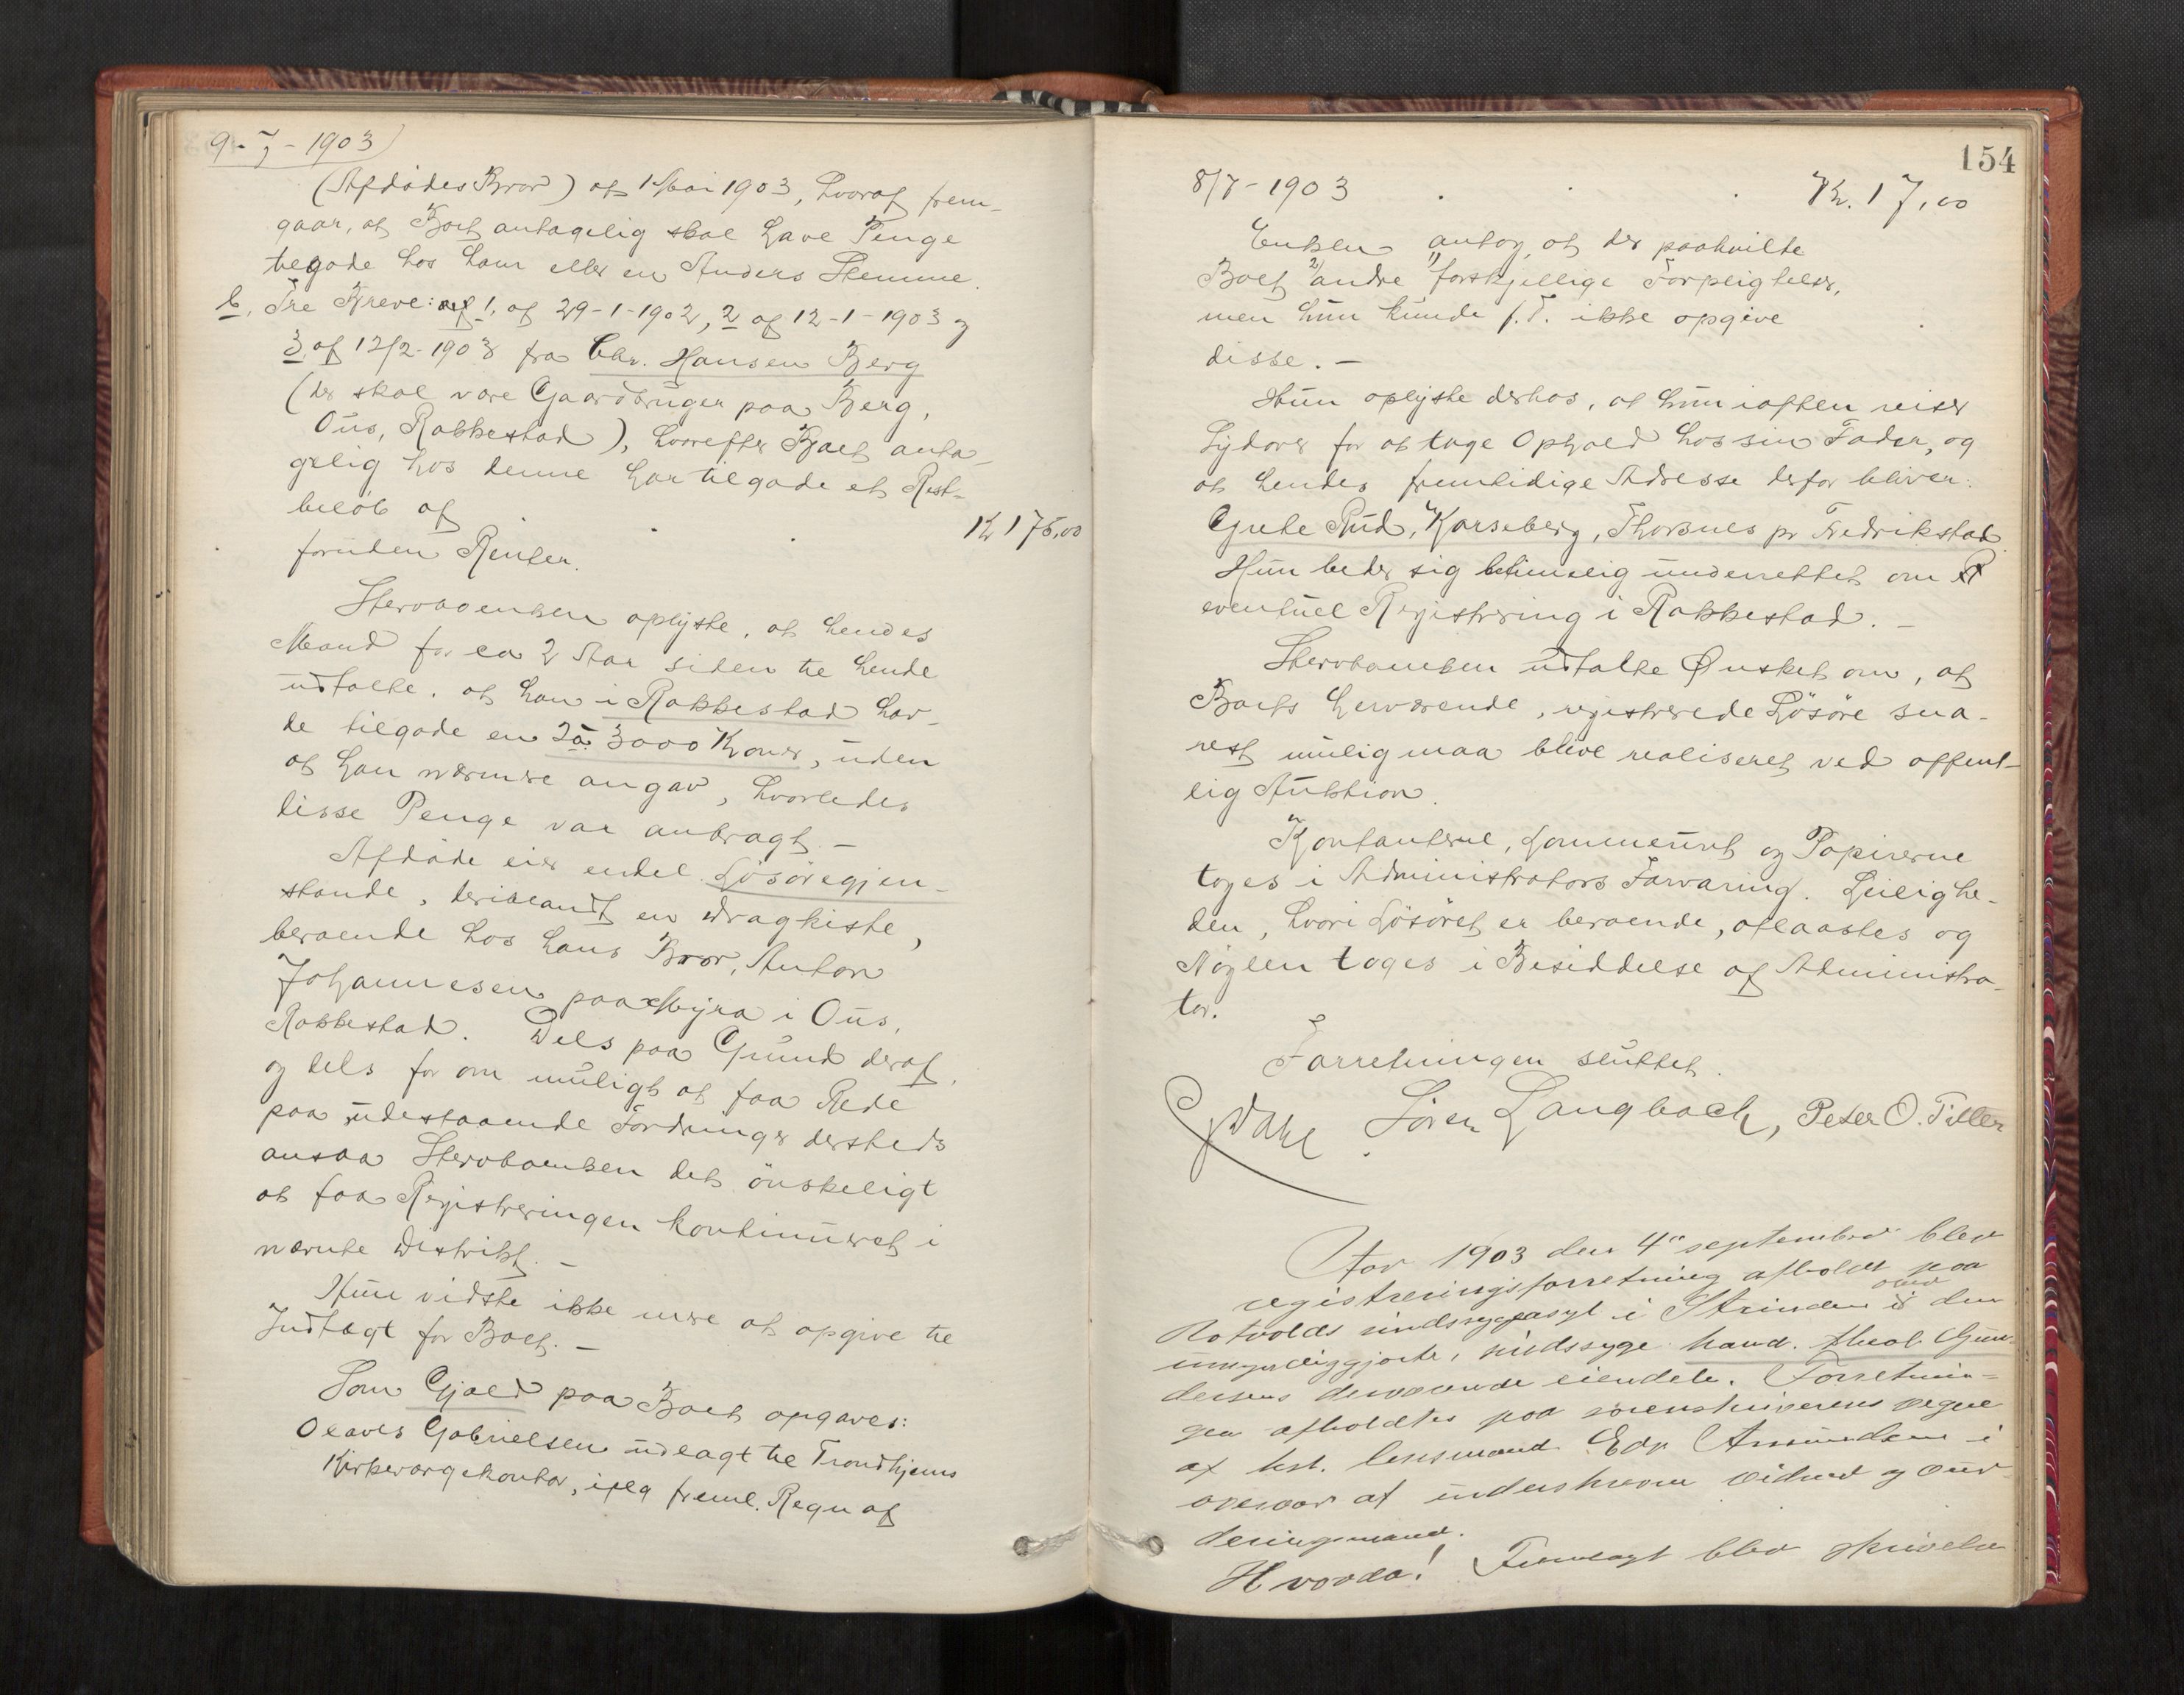 9-7-1903
(Afdødes Bror) af 1 Mai 1903, hvoraf frem-
gaar, at Boet antagelig skal have Penge
tilgode hos ham eller en Anders Stemme.
b, Tre Breve: 1, af 29-1-1902, 2 af 12-1-1903 og
3, af 12/2-1903 fra Chr. Hansen Berg
(der skal være Gaardbruger paa Berg,
Ous, Rakkestad), hvorefter Boet anta-
gelig hos denne har tilgode et Rest-
beløb af
Kr 175,00
foruden Renter.
Stervboenken oplyste, at hendes
Mand for ca 2 Aar siden til hende
udtalte, at han i Rakkestad hav-
de tilgode en 2 à 3000 Kroner, uden
at han nærmere angav, hvorledes
disse Penge var anbragt. -
Afdøde eier endel Løsøregjen-
stande, deriblandt en Dragkiste,
beroende hos hans Bror, Anton
Johannesen paa Myra i Ous,
Rakkestad. Dels paa Grund deraf,
og dels for om muligt at faa Rede
paa udestaaende Fordringer dersteds
ansaa Stervboenken det ønskeligt
at faa Registreringen kontinueret i
nævnte Distrikt. -
Hun vidste ikke mere at opgive til
Indtægt for Boet. -
Som Gjæld paa Boet opgaves:
Olaves Gabrielsen udlagt til Trondhjems
Kirkevergekontor, ifølg freml. Regn af
154
8/7-1903
Kr. 17,00
Enken antog, at der paahvilte
Boet 2) andre 1) forskjellige Forpligtelser,
men hun kunde p.T. ikke opgive
disse. -
Hun oplyste derhos, at hun iaften reiser
Sydover for at tage Ophold hos sin Fader, og
at hendes fremtidige Adresse derfor bliver:
Grete Rud, Karseberg, Thorsnes pr Fredrikstad
Hun beder sig betimelig underrettet om
eventuel Registrering i Rakkestad. -
Stervboenken udtalte Ønsket om, at
Boets herværende, registrerede Løsøre sna-
rest mulig maa blive realiseret ved offent-
lig Auktion.
Kontanterne, Lommeuret og Papirerne
toges i Administrators Forvaring. Leilighe-
den, hvori Løsøret er beroende, aflaastes og
Nøglen toges i Besiddelse af Administra-
tor.
Forretningen sluttet.
Søren Langbach, Peter O. Tiller
Aar 1903 den 4de september blev
registreringsforretning afholdt paa
Rotvolds sindssygeasyl i Strinden over den
umyndiggjorte, sindssyge hand. Theob. Gun-
dersens derværende eiendele. Forretnin-
gen afholdtes paa sorenskriverens vegne
af kst. lensmand Edv. Amundsen i
overvær af underskrevne vidner og vur-
deringsmænd.
Hvorda! Fremlagt blev skrivelse